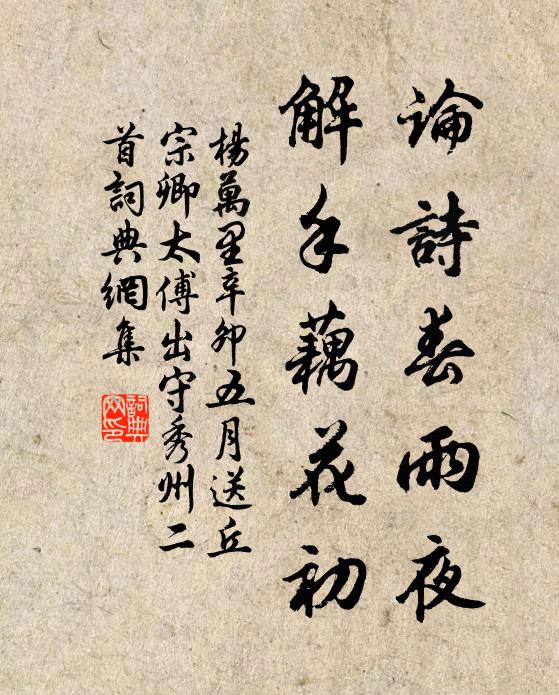 论詩春雨夜
解手藕花初
楊萬里辛卯五月送丘
宗卿太傅出守秀州二
首詞典網集
詞典網印